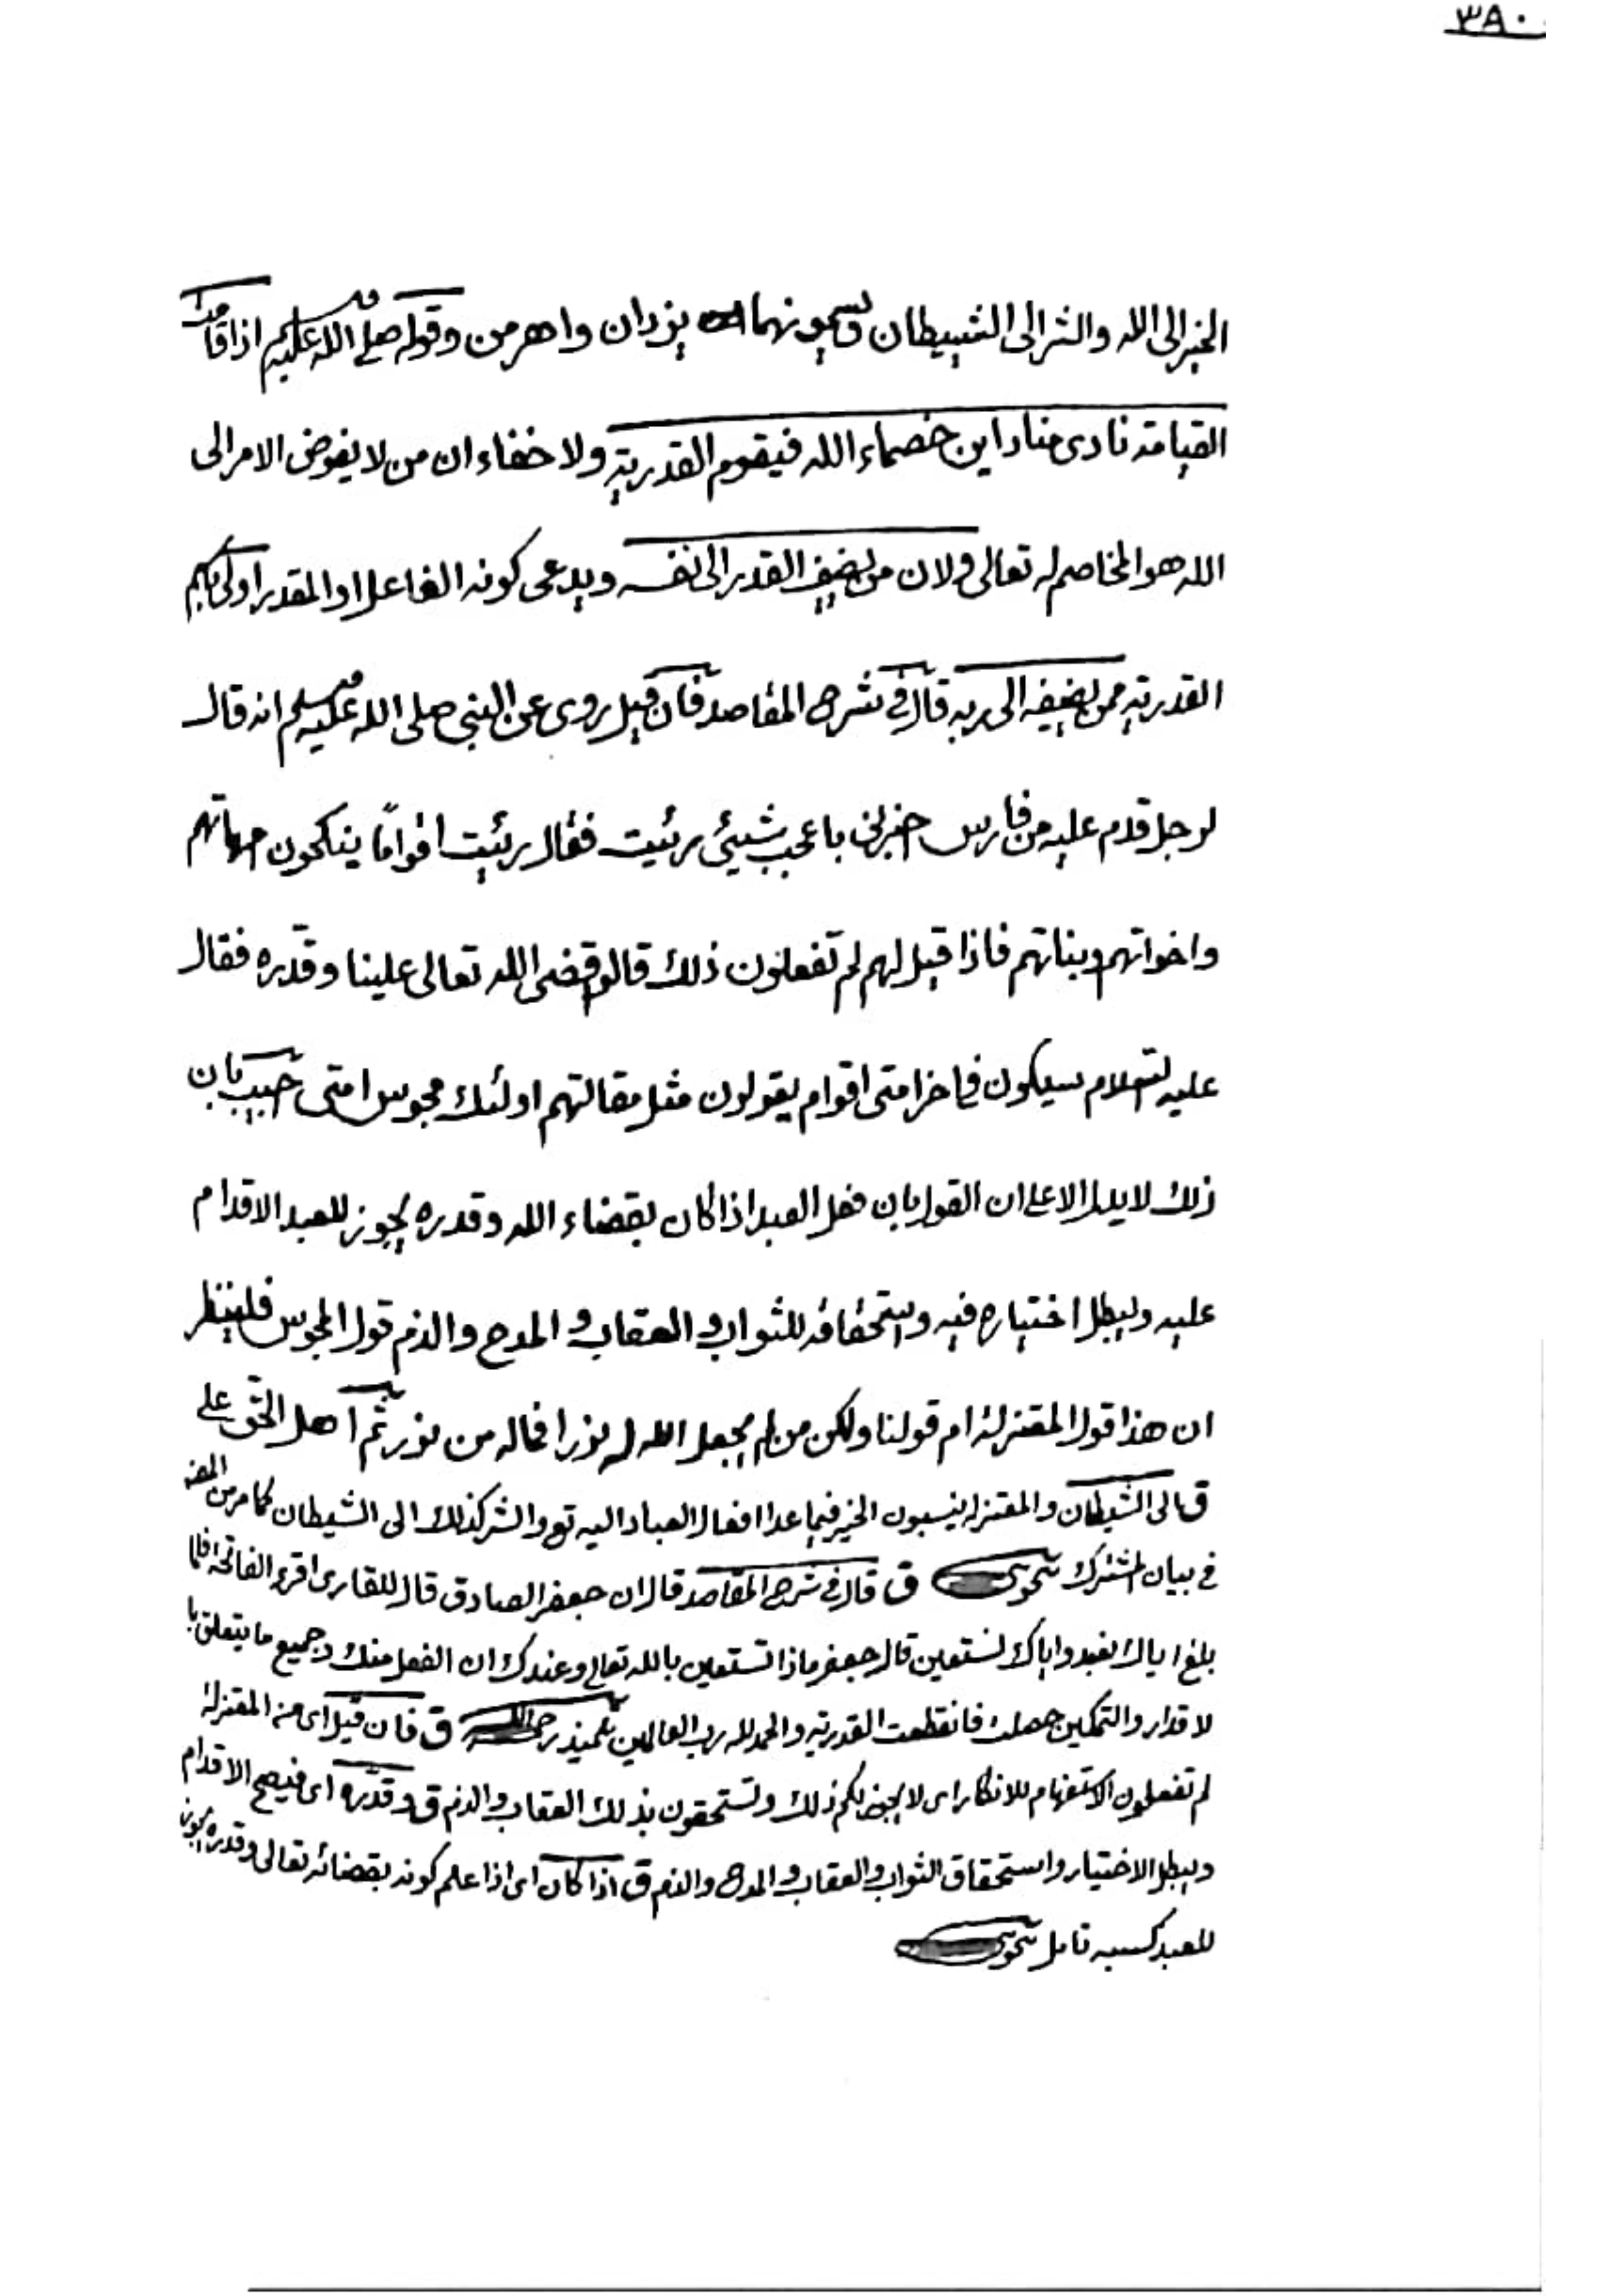 ٣٨٠
الخير الى الله والشر الى الشيطان ويسمونهما يزدان واهرمن وقوله صلى الله عليه وسلم اذا قامت
القيامة نادى مناد اين خصماء الله فيقوم القدرية ولا خفاء ان من لا يفوض الامر الى
الله هو المخاصم له تعالى ولان من يضيف القدر الى نفسه ويدعى كونه الفاعل او المقدر اولى باسم
القدرية ممن يضيفه الى ربه قال فى شرح المقاصد فان قيل روى عن النبى صلى الله عليه وسلم انه قال
لرجل قدم عليه من فارس اخبرنى باعجب شيئ رئيت فقال رئيت اقواماً ينكحون امهاتهم
واخواتهم وبناتهم فاذا قيل لهم لم تفعلون ذلك قالوا قضى الله تعالى علينا وقدّره فقال
عليه السلام سيكون فى اخر امتى اقوام يقولون مثل مقالتهم اولئك مجوس امتى اجيب بان
ذلك لا يدل الا على ان القول بان فعل العبد اذا كان بقضاء الله وقدره يجوز للعبد الاقدام
عليه ويبطل اختياره فيه واستحقاقه للثواب والعقاب والمدح والذم قول المجوس فلينظر
ان هذا قول المعتزلة ام قولنا ولكن من لم يجعل الله له نورا فماله من نور ثم اهل الحق على
ق الى الشيطان والمعتزلة ينسبون الخير فيما عدا افعال العباد اليه تع والشر كذلك الى الشيطان كما مر من المص
فى بيان المشترك ق قال فى شرح المقاصد قال ان جعفر الصادق قال للقارى اقرء الفاتحة فلما
بلغ اياك نعبد واياك نستعين قال جعفر ماذا تستعين بالله تعالى وعندك ان الفعل منك وجميع ما يتعلق با
لاقدار والتمكين حصلت فانقطعت القدرية والحمد لله رب العالمين تلميذ رحمه الله ق فان قيل اى من المعتزلة
لم تفعلون الاستفهام للانكار اى لا يجوز لكم ذلك وتستحقون بذلك العقاب والذم ق وقدّره اى فيصح الاقدام
ويبطل الاختيار واستحقاق الثواب والعقاب والمدح والذم ق اذا كان اى اذا علم كونه بقضائه تعالى وقدره يجوز
للعبد كسبه تامل